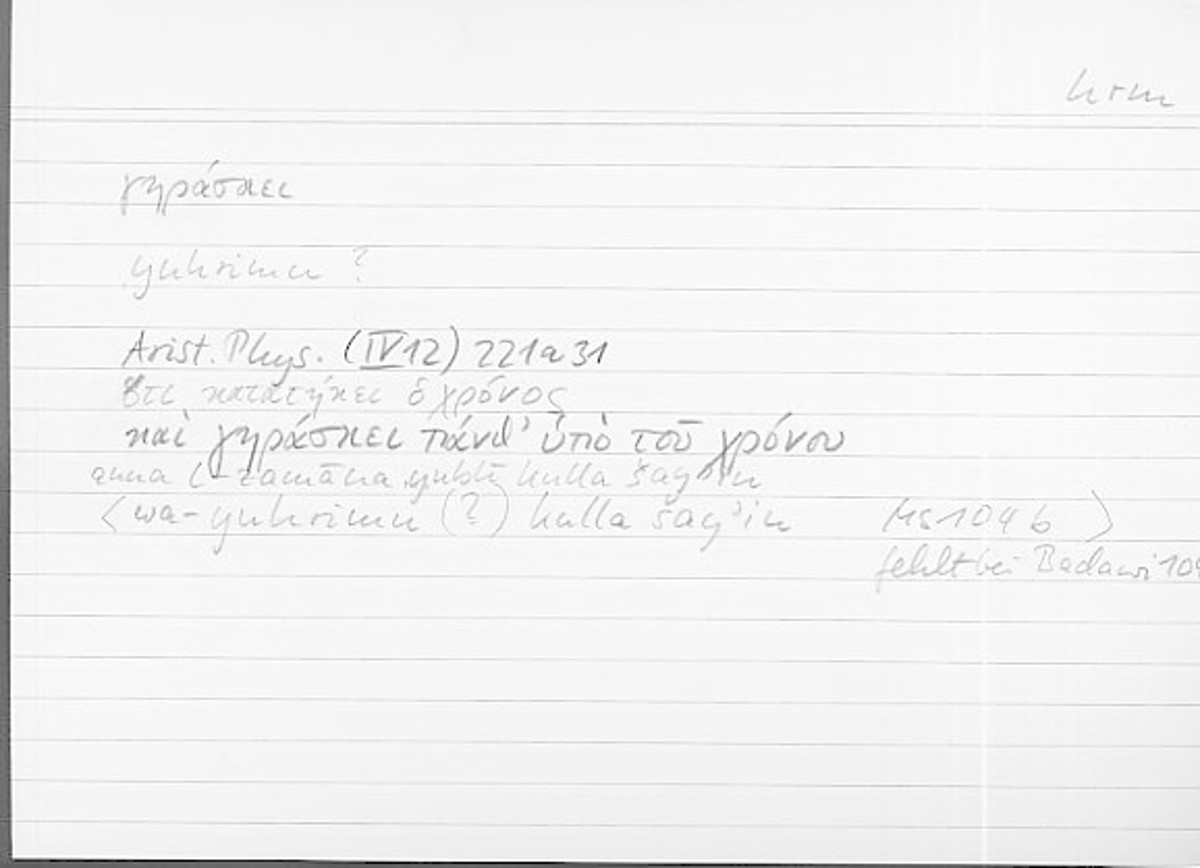 hrm
γηράσκει
yuhrimu ?
Arist. Phys. (IV 12) 221a31
ὅτι κατατήκει ὁ χρόνος
καὶ γηράσκει πάνθ' ὑπὸ τοῦ χρόνου
anna l-zamāna yublī kulla šayʾin
〈wa-yuhrimu (?) kulla šayʾin MS 104 b〉
fehlt bei Badawi